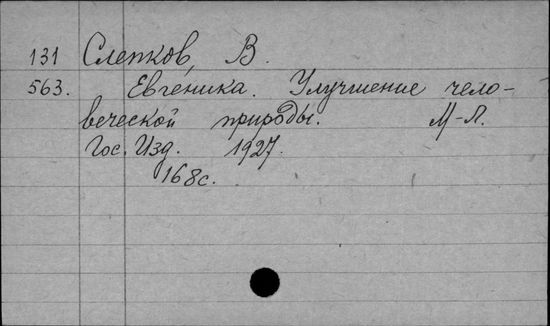 131 Слепков, В.
563. Евгеника. Улучшение чело-
веческой природы. М-Л.
Гос. Изд. 1927.
168с.